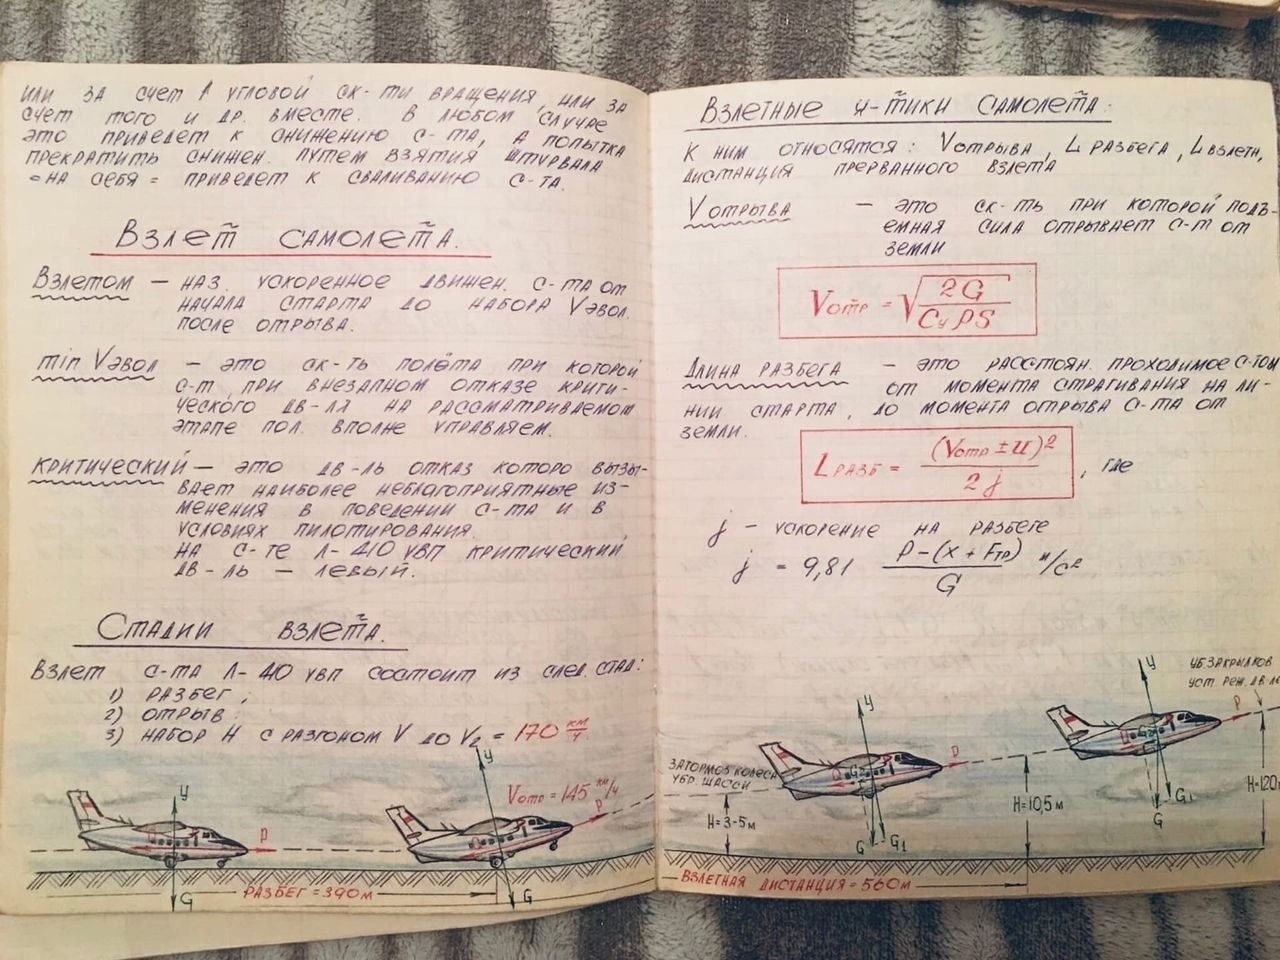 или за счет ↑ угловой ск-ти вращения, или за
счет того и др. вместе. В любом случае
это приведет к снижению с-та, а попытка
прекратить снижен. путем взятия штурвала
=на себя= приведет к сваливанию с-та.
Взлет самолета.
Взлетом — наз. ускоренное движен. с-та от
начала старта до набора Vэвол.
после отрыва.
min Vэвол — это ск-ть полёта при которой
с-т при внезапном отказе крити-
ческого дв-ля на рассматриваемом
этапе пол. вполне управляем.
критический — это дв-ль отказ которо вызы-
вает наиболее неблагоприятные из-
менения в поведении с-та и в
условиях пилотирования.
на с-те Л-410 увп критический
дв-ль — левый.
Стадии взлета.
Взлет с-та Л-410 увп состоит из след. стад:
1) разбег;
2) отрыв
3) набор H с разгоном V до V₂ = 170 км/ч
y
P
G
Разбег = 390 м
y
Vотр = 145 км/ч
P
G
Взлетные х-тики самолета.
К ним относятся: Vотрыва, L разбега, L взлетн,
дистанция прерванного взлета
V отрыва — это ск-ть при которой подъ-
емная сила отрывает с-т от
земли
Vотр = √(2G / CyρS)
Длина разбега — это расстоян. проходимое с-том
от момента страгивания на ли-
нии старта, до момента отрыва с-та от
земли.
Lразб = (Vотр ± U)² / 2j, где
j — ускорение на разбеге
j = 9,81 P – (x + Fтр) / G м/с²
y
уб. закрылков
уст. реж. дв-ле
P
G₁
G
H=120м
y
затормоз колеса
убр. шасси
P
H=3-5м
G G₁
H=10,5 м
Взлетная дистанция = 560м